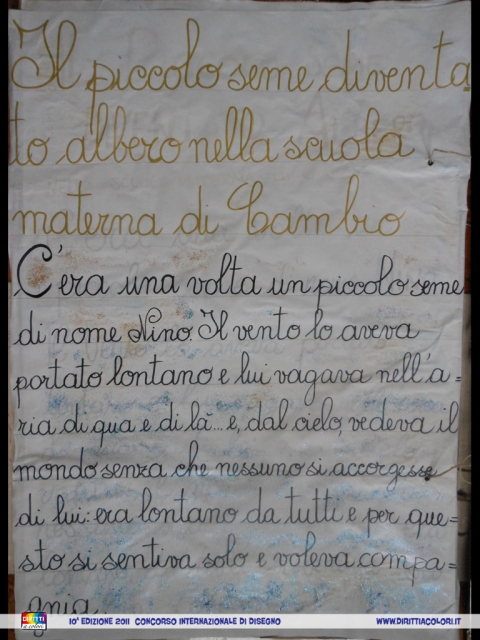 Il piccolo seme diventa
to albero nella scuola
materna di Cambio
C'era una volta un piccolo seme
di nome Nino. Il vento lo aveva
portato lontano e lui vagava nell'a=
ria di qua e di là... e, dal cielo, vedeva il
mondo senza che nessuno si accorgesse
di lui: era lontano da tutti e per que=
sto si sentiva solo e voleva compa=
gnia.
DIRITTI A COLORI
10ª EDIZIONE 2011 CONCORSO INTERNAZIONALE DI DISEGNO
WWW.DIRITTIACOLORI.IT